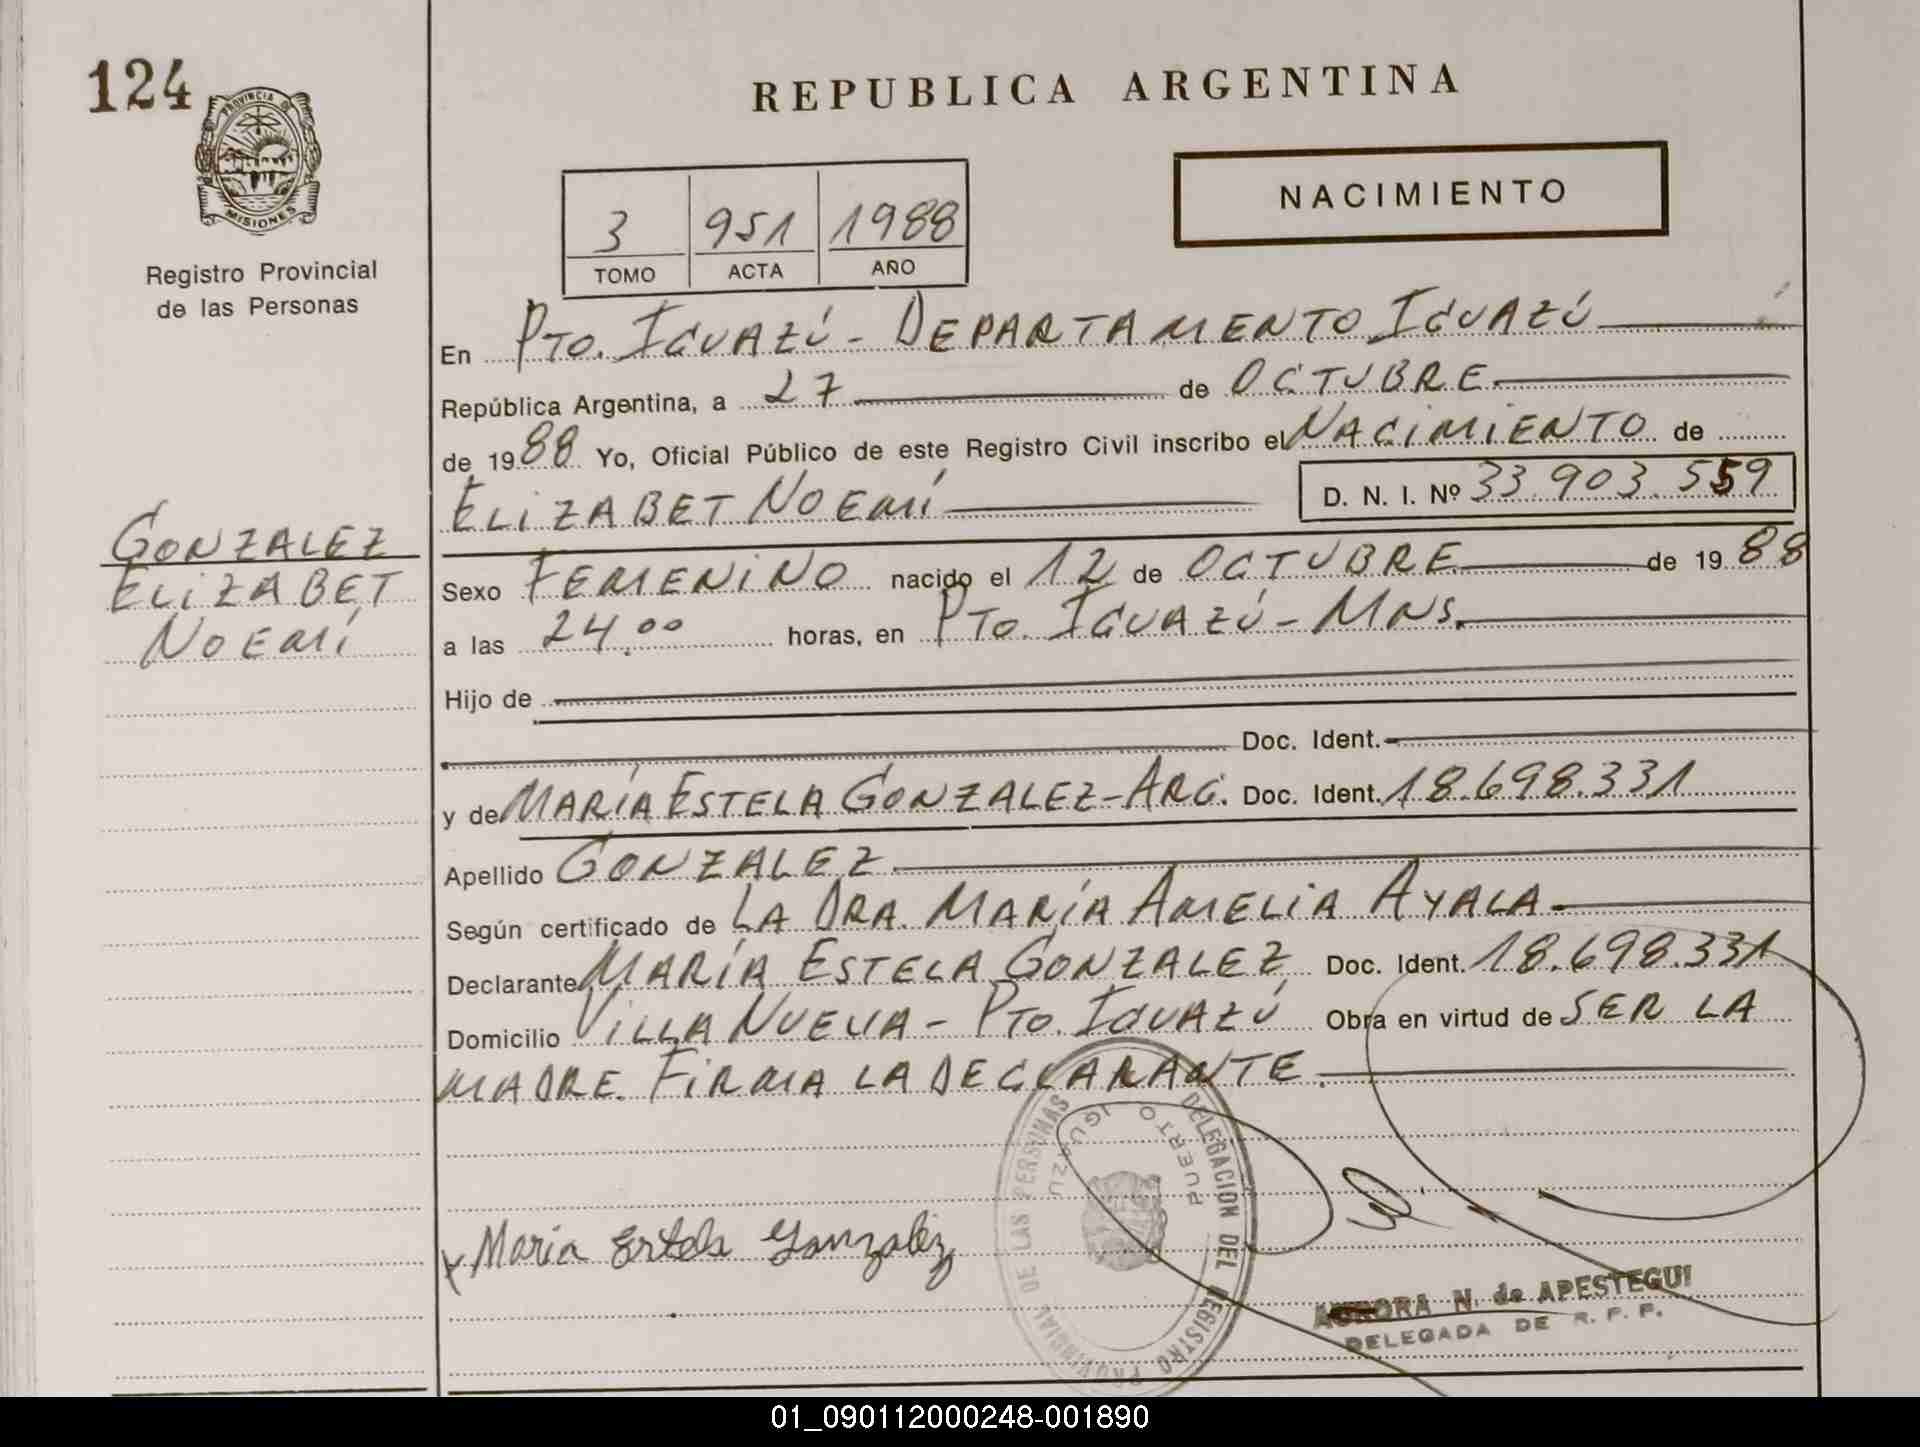 124
PROVINCIA DE
MISIONES
Registro Provincial
de las Personas
REPUBLICA ARGENTINA
NACIMIENTO
3 951 1988
TOMO ACTA AÑO
En PTO. IGUAZÚ - DEPARTAMENTO IGUAZÚ
República Argentina, a 27 de OCTUBRE
de 1988 Yo, Oficial Público de este Registro Civil inscribo el NACIMIENTO de
ELIZABET NOEMÍ D. N. I. Nº 33.903.559
GONZALEZ
ELIZABET
NOEMÍ
Sexo FEMENINO nacido el 12 de OCTUBRE de 1988
a las 24.00 horas, en PTO. IGUAZÚ - MNS.
Hijo de
Doc. Ident.
y de MARÍA ESTELA GONZALEZ - ARG. Doc. Ident. 18.698.331
Apellido GONZALEZ
Según certificado de LA DRA. MARÍA AMELIA AYALA
Declarante MARÍA ESTELA GONZALEZ Doc. Ident. 18.698.331
Domicilio VILLA NUEVA - PTO. IGUAZÚ Obra en virtud de SER LA
MADRE. FIRMA LA DECLARANTE.
DELEGACION DEL REGISTRO PROVINCIAL DE LAS PERSONAS
PUERTO IGUAZU
x Maria Estela Gonzalez
AURORA N. de APESTEGUI
DELEGADA DE R. P. P.
01_090112000248-001890